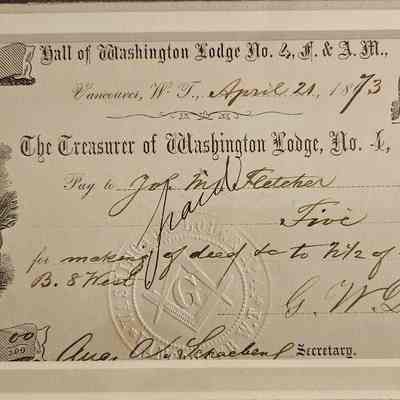 Hall of Washington Lodge No. 4, F. & A. M.,
Vancouver, W. T., April 21, 1873
The Treasurer of Washington Lodge, No. 4,
Pay to Jos. M. Fletcher
Five
for making of deed &c to N1/2 of
B. 8 West
paid
G. W.
Aug. Secretary.
00
G